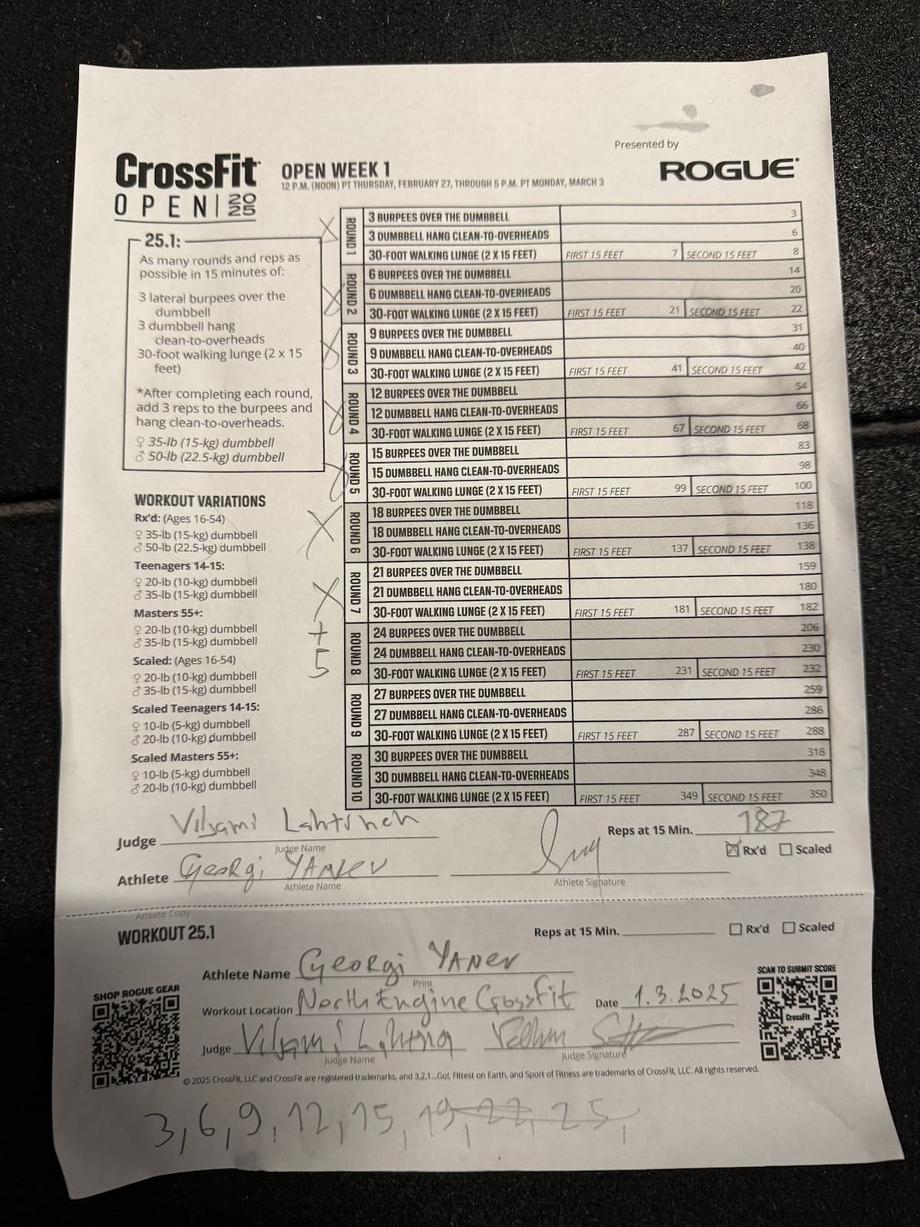 Presented by
CrossFit OPEN WEEK 1 ROGUE
12 P.M. (NOON) PT THURSDAY, FEBRUARY 27, THROUGH 5 P.M. PT MONDAY, MARCH 3
OPEN 2025
25.1:
As many rounds and reps as
possible in 15 minutes of:
3 lateral burpees over the
dumbbell
3 dumbbell hang
clean-to-overheads
30-foot walking lunge (2 x 15
feet)
*After completing each round,
add 3 reps to the burpees and
hang clean-to-overheads.
♀ 35-lb (15-kg) dumbbell
♂ 50-lb (22.5-kg) dumbbell
WORKOUT VARIATIONS
Rx'd: (Ages 16-54)
♀ 35-lb (15-kg) dumbbell
♂ 50-lb (22.5-kg) dumbbell
Teenagers 14-15:
♀ 20-lb (10-kg) dumbbell
♂ 35-lb (15-kg) dumbbell
Masters 55+:
♀ 20-lb (10-kg) dumbbell
♂ 35-lb (15-kg) dumbbell
Scaled: (Ages 16-54)
♀ 20-lb (10-kg) dumbbell
♂ 35-lb (15-kg) dumbbell
Scaled Teenagers 14-15:
♀ 10-lb (5-kg) dumbbell
♂ 20-lb (10-kg) dumbbell
Scaled Masters 55+:
♀ 10-lb (5-kg) dumbbell
♂ 20-lb (10-kg) dumbbell
X ROUND 1
3 BURPEES OVER THE DUMBBELL 3
3 DUMBBELL HANG CLEAN-TO-OVERHEADS 6
30-FOOT WALKING LUNGE (2 X 15 FEET) FIRST 15 FEET 7 SECOND 15 FEET 8
X ROUND 2
6 BURPEES OVER THE DUMBBELL 14
6 DUMBBELL HANG CLEAN-TO-OVERHEADS 20
30-FOOT WALKING LUNGE (2 X 15 FEET) FIRST 15 FEET 21 SECOND 15 FEET 22
X ROUND 3
9 BURPEES OVER THE DUMBBELL 31
9 DUMBBELL HANG CLEAN-TO-OVERHEADS 40
30-FOOT WALKING LUNGE (2 X 15 FEET) FIRST 15 FEET 41 SECOND 15 FEET 42
X ROUND 4
12 BURPEES OVER THE DUMBBELL 54
12 DUMBBELL HANG CLEAN-TO-OVERHEADS 66
30-FOOT WALKING LUNGE (2 X 15 FEET) FIRST 15 FEET 67 SECOND 15 FEET 68
X ROUND 5
15 BURPEES OVER THE DUMBBELL 83
15 DUMBBELL HANG CLEAN-TO-OVERHEADS 98
30-FOOT WALKING LUNGE (2 X 15 FEET) FIRST 15 FEET 99 SECOND 15 FEET 100
X ROUND 6
18 BURPEES OVER THE DUMBBELL 118
18 DUMBBELL HANG CLEAN-TO-OVERHEADS 136
30-FOOT WALKING LUNGE (2 X 15 FEET) FIRST 15 FEET 137 SECOND 15 FEET 138
X ROUND 7
21 BURPEES OVER THE DUMBBELL 159
21 DUMBBELL HANG CLEAN-TO-OVERHEADS 180
30-FOOT WALKING LUNGE (2 X 15 FEET) FIRST 15 FEET 181 SECOND 15 FEET 182
+ 5 ROUND 8
24 BURPEES OVER THE DUMBBELL 206
24 DUMBBELL HANG CLEAN-TO-OVERHEADS 230
30-FOOT WALKING LUNGE (2 X 15 FEET) FIRST 15 FEET 231 SECOND 15 FEET 232
ROUND 9
27 BURPEES OVER THE DUMBBELL 259
27 DUMBBELL HANG CLEAN-TO-OVERHEADS 286
30-FOOT WALKING LUNGE (2 X 15 FEET) FIRST 15 FEET 287 SECOND 15 FEET 288
ROUND 10
30 BURPEES OVER THE DUMBBELL 318
30 DUMBBELL HANG CLEAN-TO-OVERHEADS 348
30-FOOT WALKING LUNGE (2 X 15 FEET) FIRST 15 FEET 349 SECOND 15 FEET 350
Judge Viljami Reps at 15 Min. 187
Judge Name Rx'd Scaled
Athlete Georgi YANEV
Athlete Name Athlete Signature
Athlete Copy
WORKOUT 25.1 Reps at 15 Min. Rx'd Scaled
Athlete Name Georgi YANEV
Print
SHOP ROGUE GEAR
SCAN TO SUBMIT SCORE
CrossFit
Workout Location North Engine CrossFit Date 1.3.2025
Judge Viljami
Judge Name Judge Signature
© 2025 CrossFit, LLC and CrossFit are registered trademarks, and 3,2,1...Go!, Fittest on Earth, and Sport of Fitness are trademarks of CrossFit, LLC. All rights reserved.
3, 6, 9, 12, 15, 19, 22, 25,